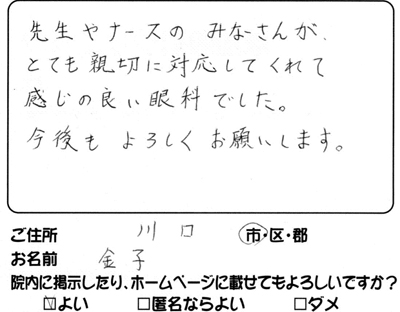 先生やナースの みなさんが、
とても親切に対応してくれて
感じの良い眼科でした。
今後も よろしく お願いします。
ご住所 川口 市・区・郡
お名前 金子
院内に掲示したり、ホームページに載せてもよろしいですか?
☑よい □匿名ならよい □ダメ